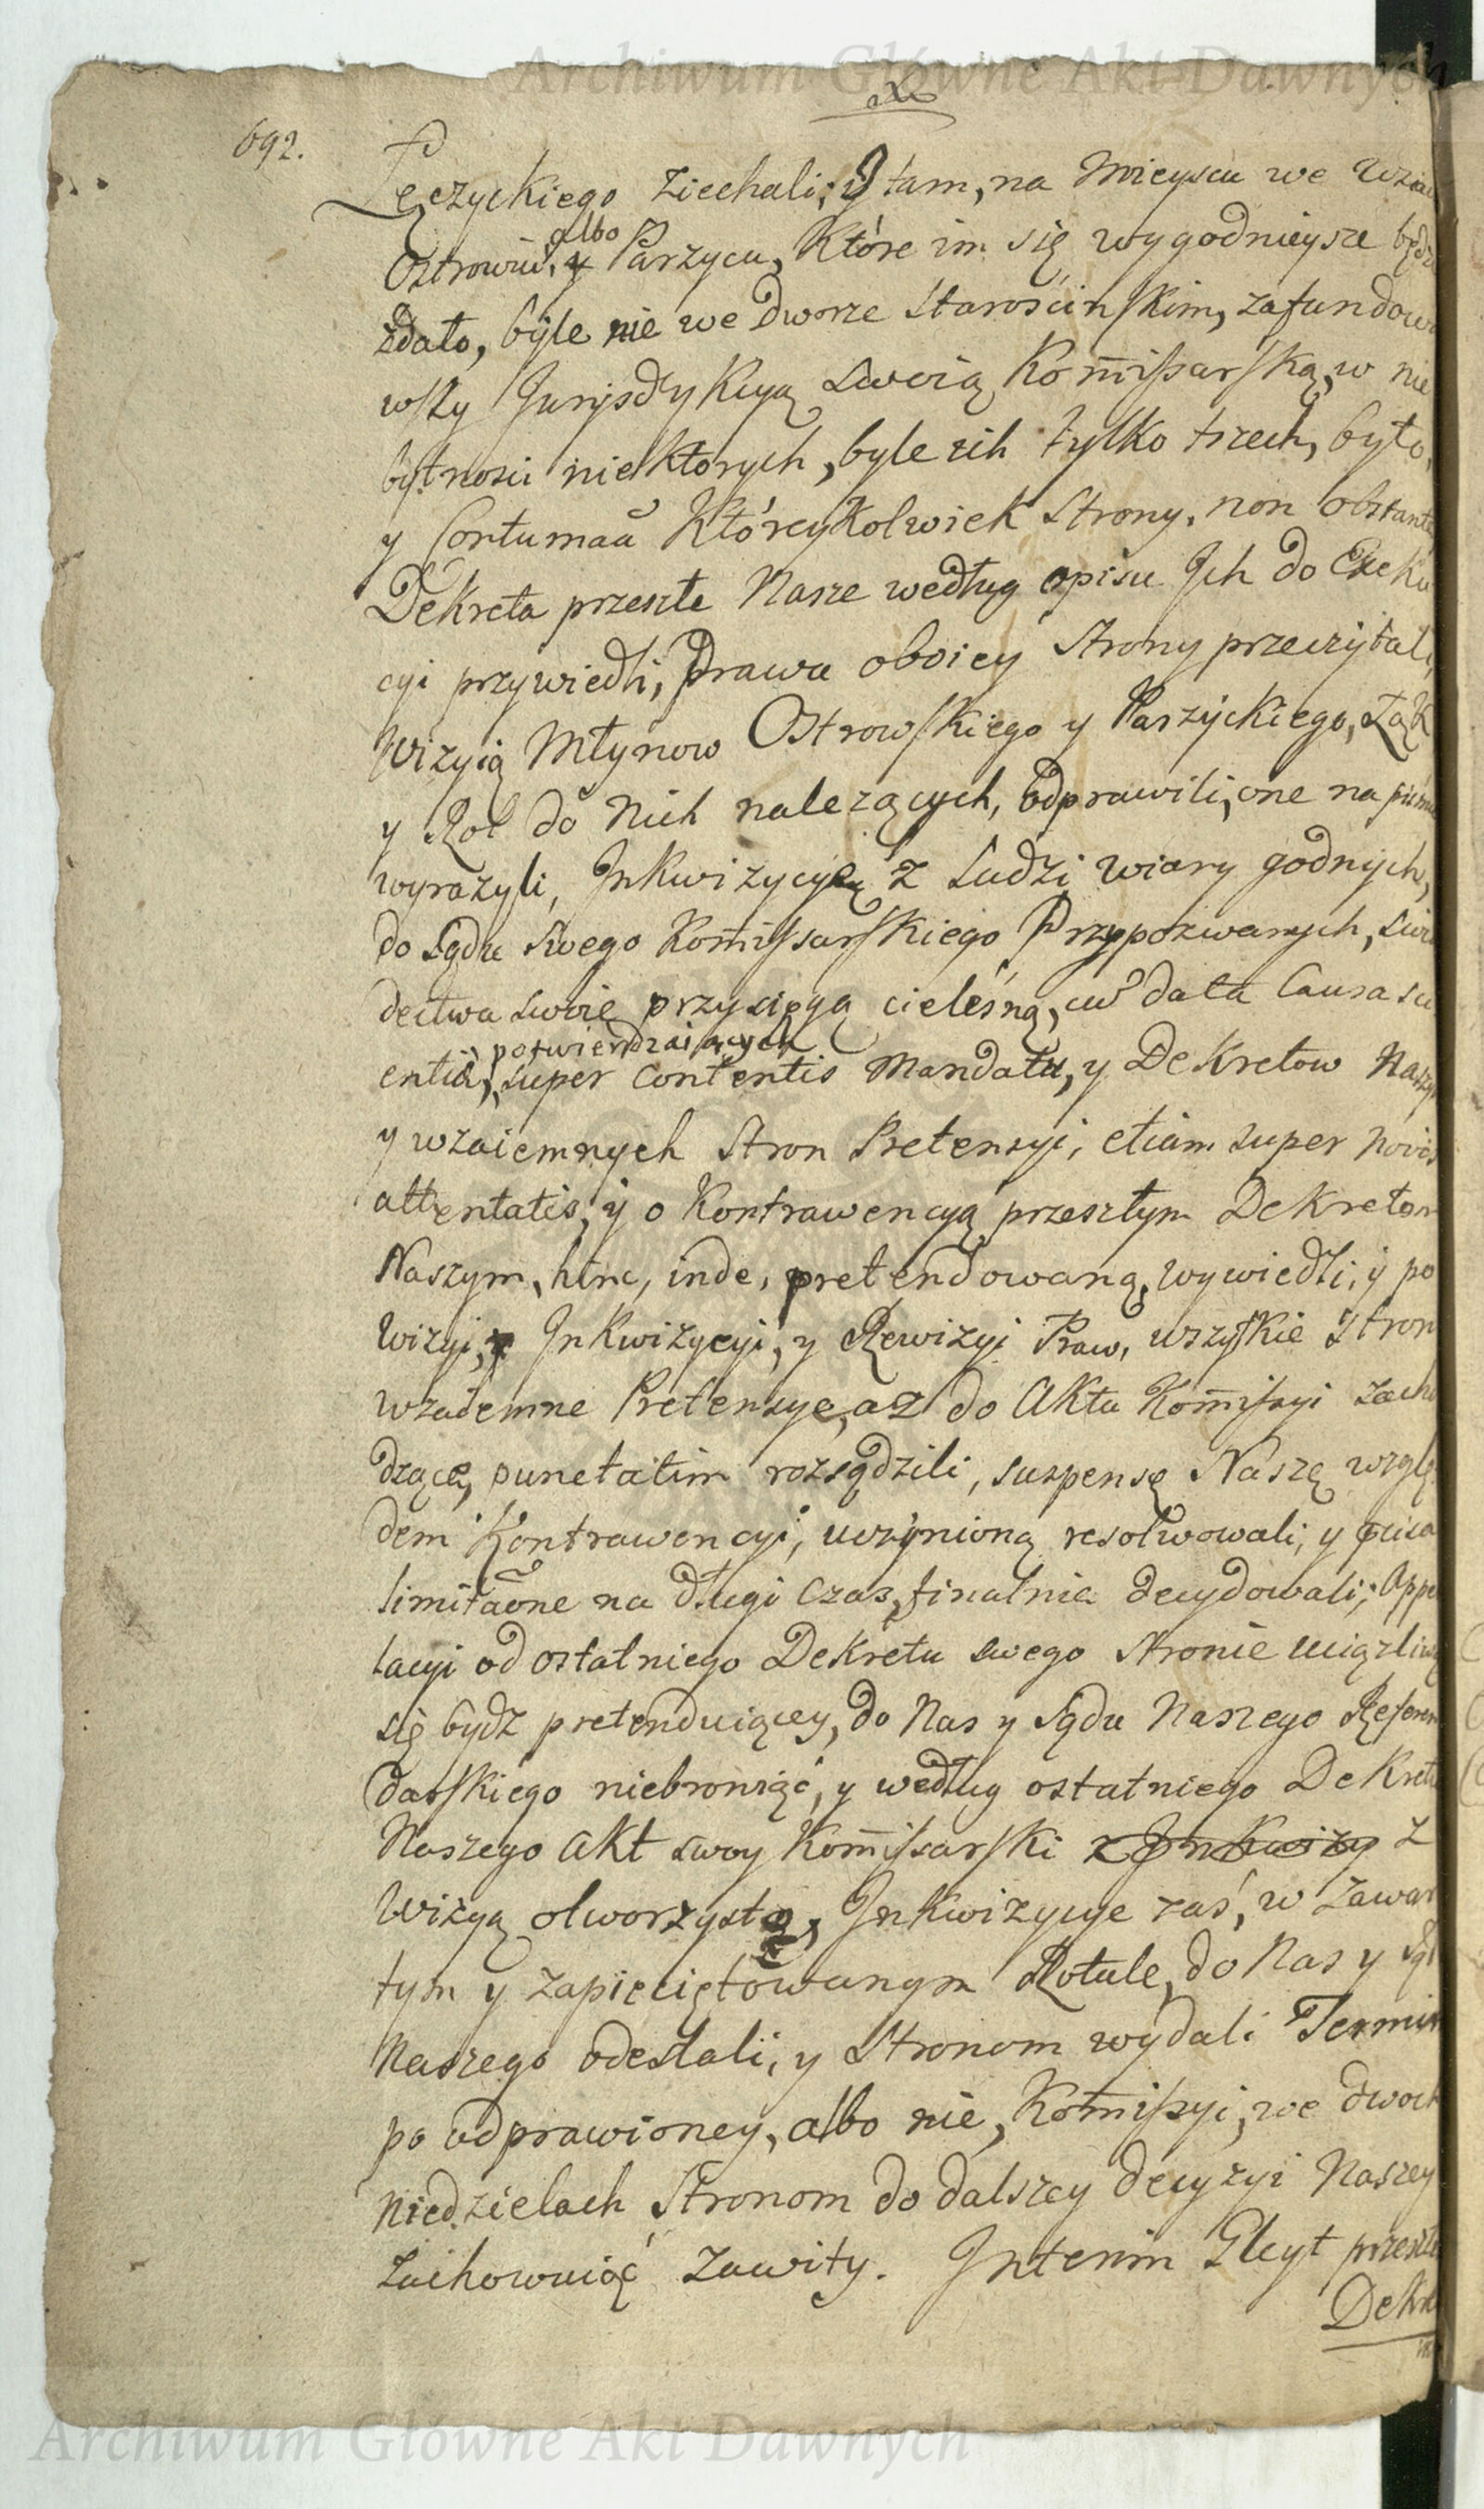 Archiwum Główne Akt Dawnych
692.
Łęczyckiego ziechali; y tam, na Mieyscu we Wzia
albo
Ostrowiu, y Parzycu, Które im się wygodnieysze będz
zdało, byle nie we Dworze Starościnskim, zafundowa
wszy Jurysdykcyą Swoią Kommissarską, w nie
bytnosci niektorych, byle ich tylko trzech, było,
y Contumacii Któreykolwiek Strony, non obstante
Dekreta przeszłe Nasze według opisu Jch do Exeku
cyi przywiedli, Prawa oboiey Strony przeczytali,
Wizyią Młynow Ostrowskiego y Parzyckiego, Łąk
y Rol do Nich nalezących, odprawili, one na pismie
wyrazyli, Jnkwizycyą z Ludzi wiary godnych,
do Sądu Swego Kommissarskiego Przypozwanych, Swia
dectwa swoie przysięgą cielesną, cum data Causa sci
potwierdzaiących
entiæ, super contentis Mandatu, y Dekretow Naszych
y wzaiemnych Stron Pretensyi, etiam super novis
attentatis, y o Kontrawencyą przeszłym Dekretom
Naszym, hinc, inde, pretendowaną, wywiedli, y po
Wizyi, y Jnkwizycyi, y Rewizyi Praw, wszystkie Stron
wzaiemne Pretensye, az do Aktu Kommissyi zacho
dzące, punctatim rozsądzili, suspensę Naszę wzglę
dem Kontrawencyi, uczynioną resolwowali, y
na długi czas, finalnie decydowali; Appe
lacyi od ostatniego Dekretu swego Stronie uciązliwą
się bydz pretenduiącey, do Nas y Sądu Naszego Referen
darskiego niebroniąc, y według ostatniego Dekretu
Naszego Akt swoy Kommissarski z Jnkwizy z
Wizyą otworzystą, Jnkwizycye zaś, w zawar
tym y zapieciętowanym Rotule, do Nas y Sąd
Naszego odesłali, y Stronom wydali Termin
po odprawioney, albo nie, Kommissyi, we dwoch
Niedzielach Stronom do dalszey decyzyi Naszey
Zachowuiąc Zawity. Jnterim Gleyt przeszłe
Dekre
Archiwum Główne Akt Dawnych